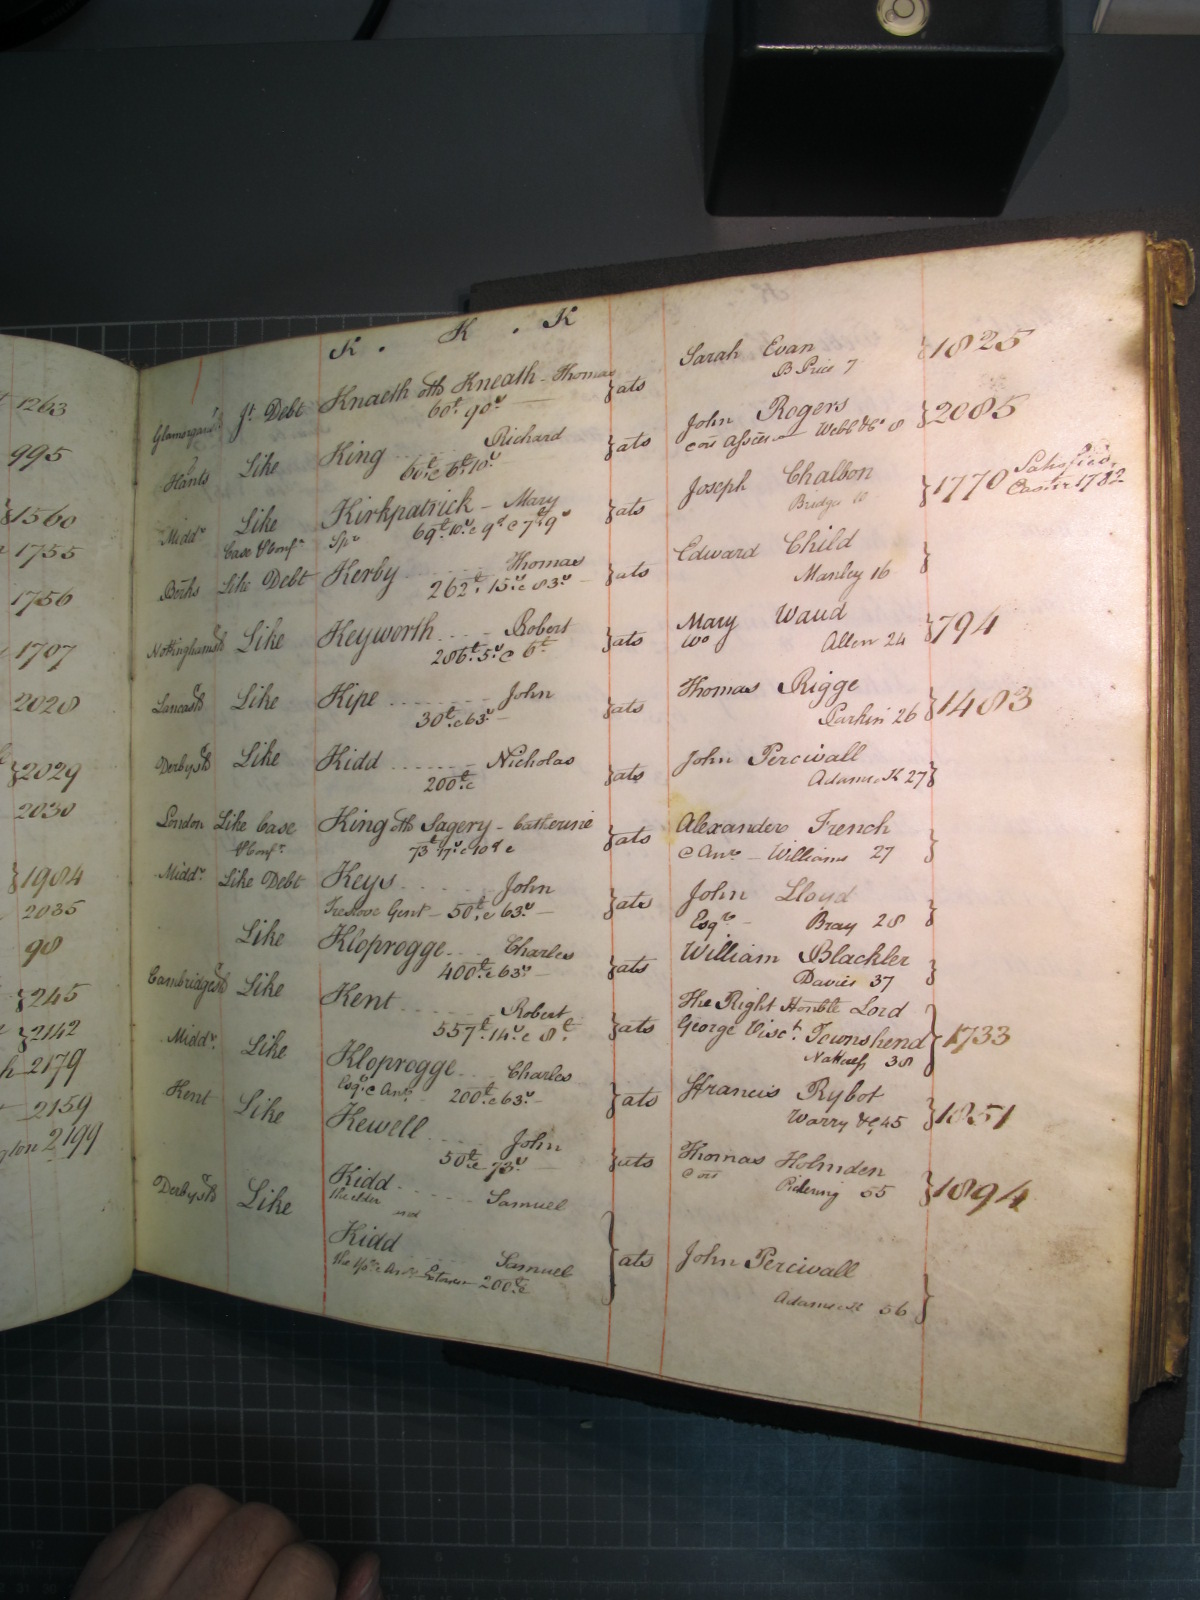 1263
995
1560
1755
1756
1707
2028
2029
2030
1984
2035
98
245
2142
2179
2159
2199
K . K . K
Glamorgans Jt. Debt Knaeth oths Kneath - Thomas }ats Sarah Evan }1825
60£. 90s B Price 7
Hants Like King Richard }ats John Rogers }2085
60£. & 6£. 10s Webb &c 8
Middx Like Kirkpatrick - Mary }ats Joseph Chalbon }1770 Satisfied
Case & Conf. Spr 69£. 10s & 9d & 7£ 9s Bridge 10 Easter 1782
Berks Like Debt Kerby Thomas }ats Edward Child }
262£. 15s & 83s Manley 16
Nottinghams Like Keyworth Robert }ats Mary Waud }794
286£. 5s & 6£ Wo Allen 24
Lancash Like Kipe John }ats Thomas Rigge }1483
30£. & 63s Parkin 26
Derbysh Like Kidd Nicholas }ats John Percivall }
200£. & Adams K 27
London Like Case King oths Sagery - Catherine }ats Alexander French }
& Conf. 73£ 17s & 10d & & Anr Williams 27
Middx Like Debt Keys John }ats John Lloyd }
Gent - 50£. & 63s Esqr Bray 28
Like Kloprogge Charles }ats William Blackler }
400£. & 63s Davies 37
Cambridgesh Like Kent Robert }ats The Right Honble Lord
557£. 14s & 8£ George Visct. Townshend }1733
38
Middx Like Kloprogge Charles }ats Francis Rybot }1851
Esqr & Anr 200£. & 63s Warry &c 45
Kent Like Kewell John }ats Thomas Holmden }1894
50£. & 73s Pickering 55
Derbysh Like Kidd Samuel
the elder and
Kidd Samuel }ats John Percivall }
200£. & Adams K 56